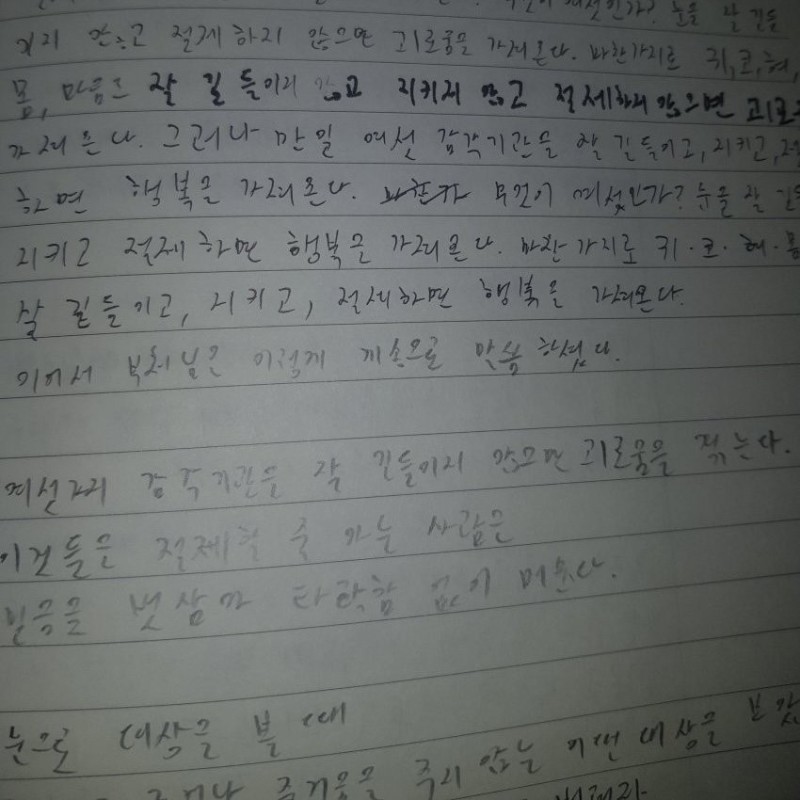 무엇이 여섯인가? 눈을 잘 길들
키지 않고 절제하지 않으면 괴로움을 가져온다. 마찬가지로 귀, 코, 혀,
몸, 마음도 잘 길들이지 않고 지키지 않고 절제하지 않으면 괴로
가져온다. 그러나 만일 여섯 감각기관을 잘 길들이고, 지키고, 절
하면 행복을 가져온다. 마찬가 무엇이 여섯인가? 눈을 잘 길들
지키고 절제하면 행복을 가져온다. 마찬가지로 귀·코·혀·몸
잘 길들이고, 지키고, 절제하면 행복을 가져온다.
이어서 부처님은 이렇게 게송으로 말씀하셨다.
여섯가지 감각기관을 잘 길들이지 않으면 괴로움을 겪는다.
이것들을 절제할 줄 아는 사람은
믿음을 벗삼아 타락함 없이 머문다.
눈으로 대상을 볼 때
즐거움을 주지 않는 어떤 대상을 보았